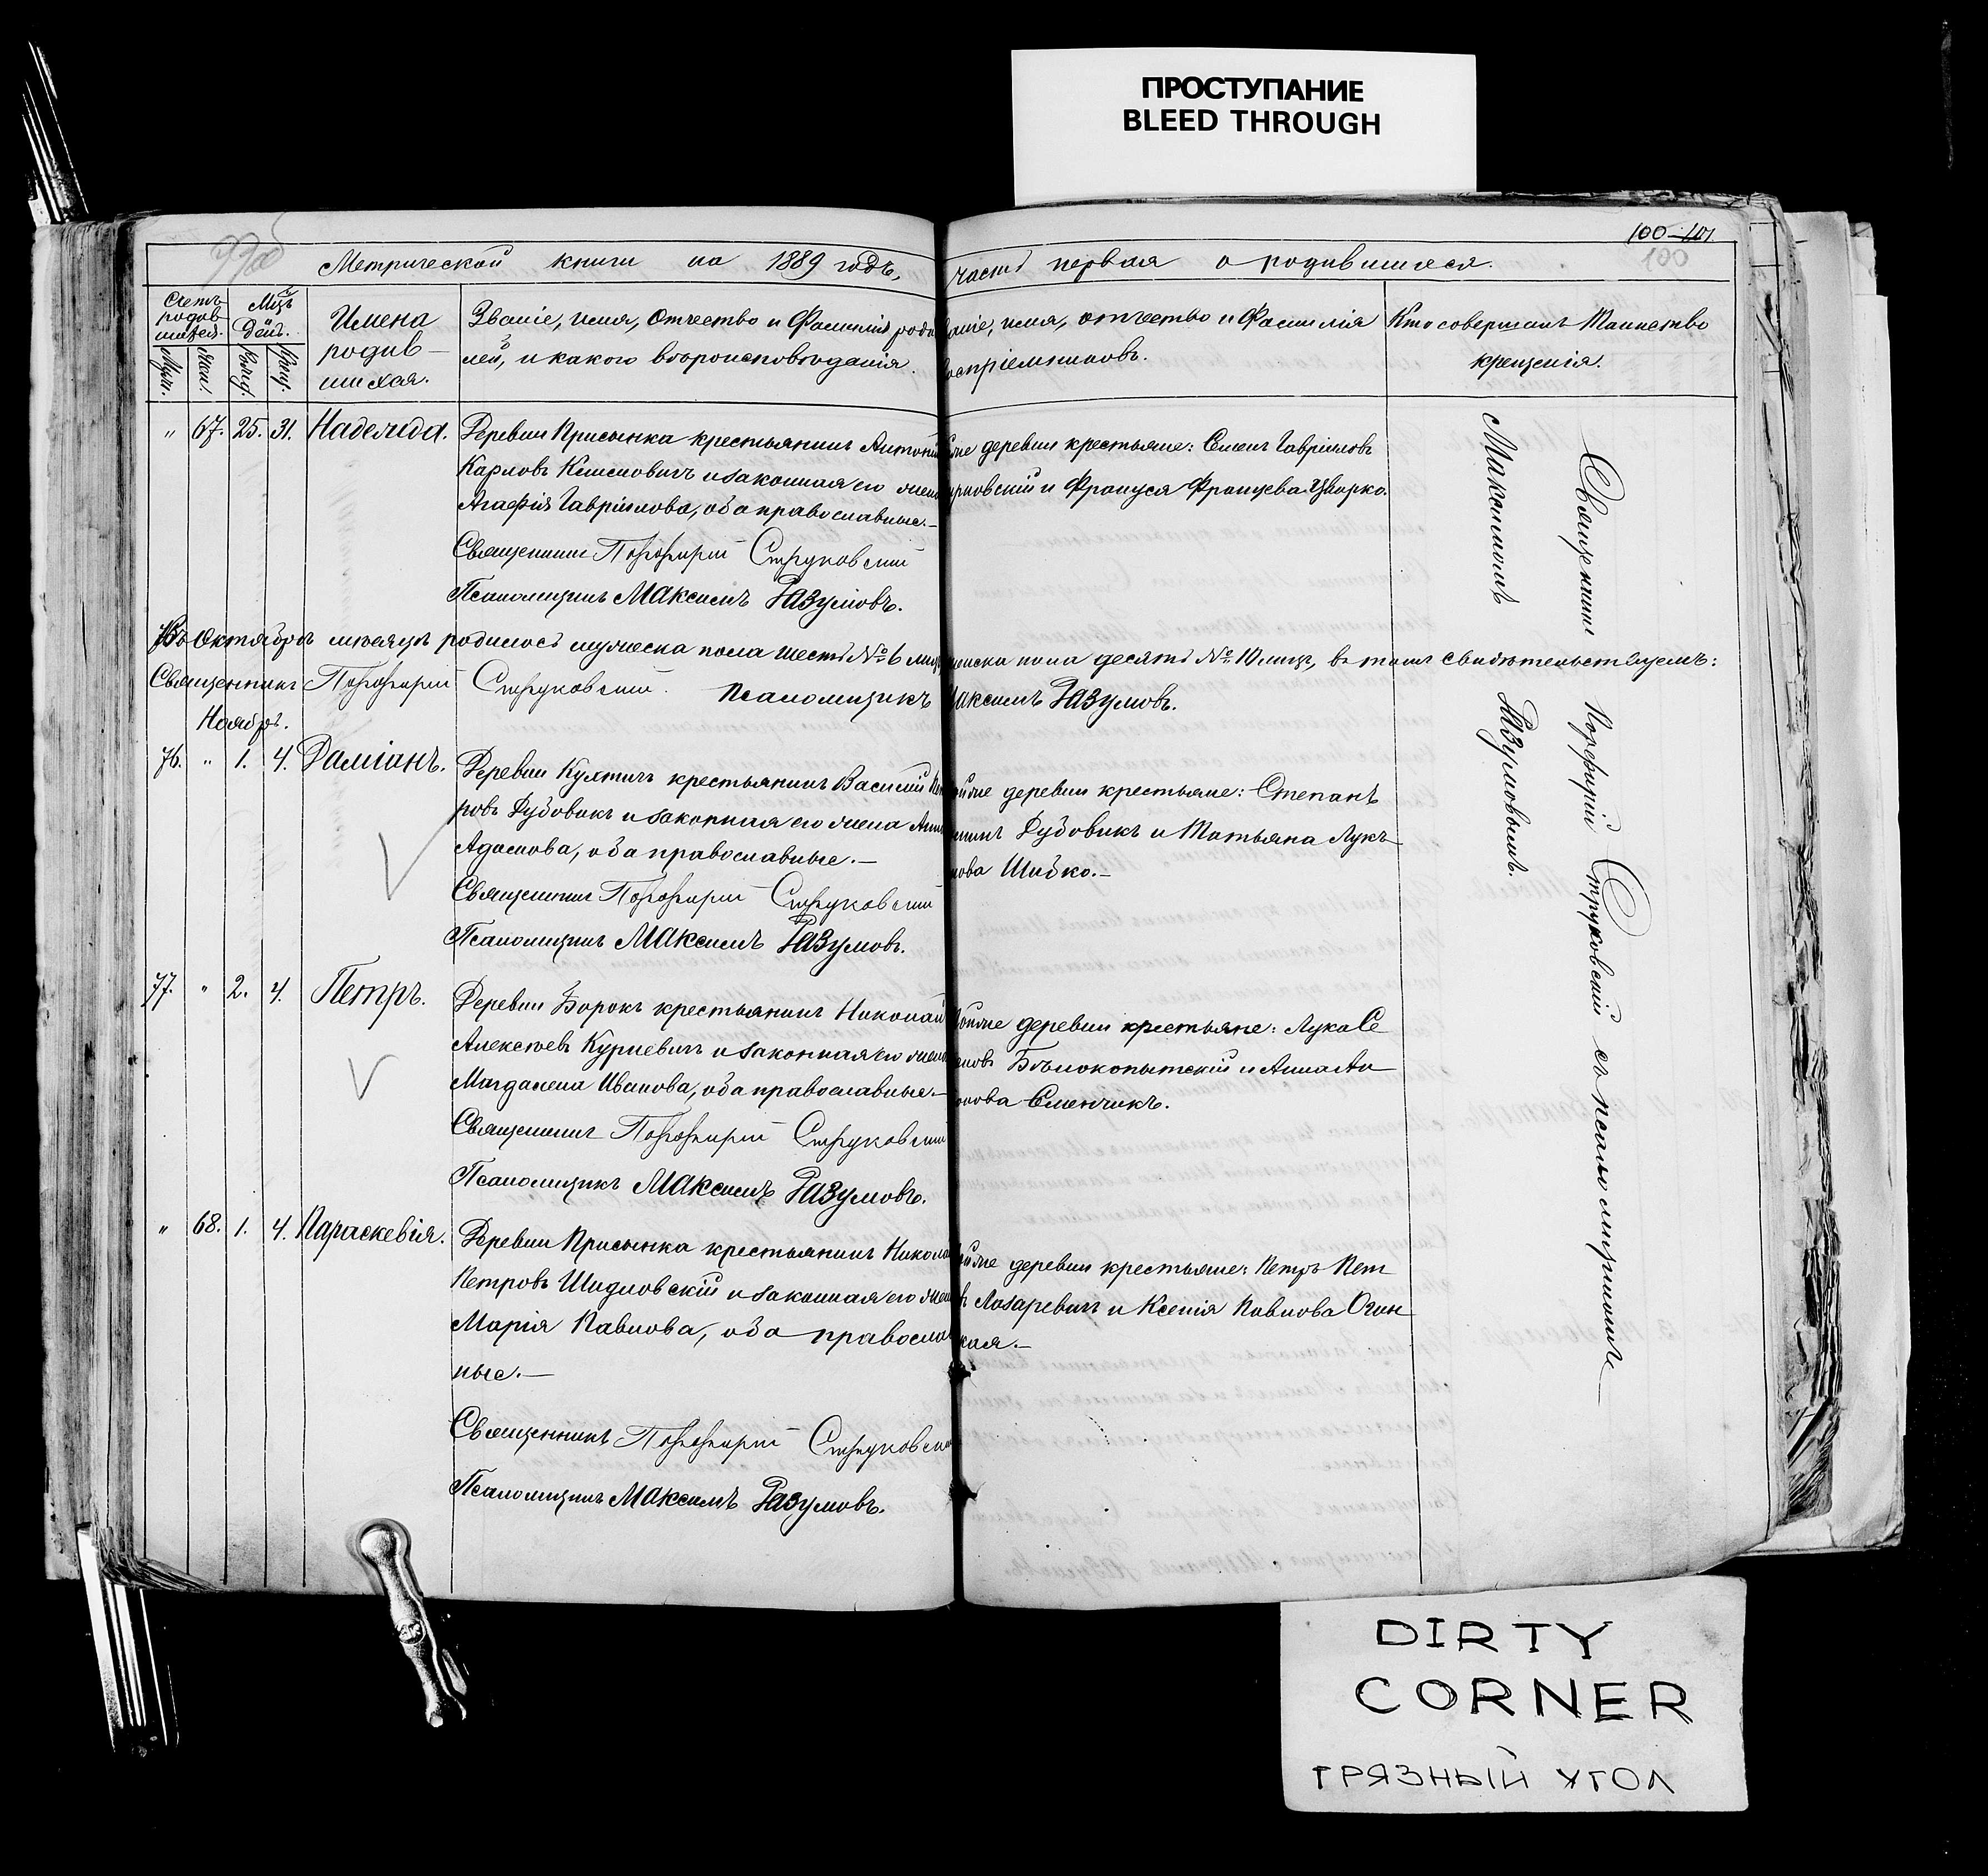 ПРОСТУПАНИЕ
BLEED THROUGH
100-101
100
Метрической книги на 1889 годъ, часть первая о родившихся.
Счетъ родив-шихся.
Муж.
Жен.
Мцъ День.
Рожд.
Крещ.
Имена
родив-
шихся.
Званіе, имя, Отчество и Фамилія роди
лей, и какого вѣроисповѣданія.
аніе, имя, отчество и Фамилія
оспріемниковъ.
Кто совершалъ Таинство
крещенія.
" 67. 25. 31. Надежда.
Деревни Присынка крестьянинъ Антоній
Карловъ Климовичъ и законная его жена
Агафія Гавріилова, оба православные.-
Священникъ Порфирій Струковскій
Псаломщикъ Максимъ Разумовъ.
деревни крестьяне: Семенъ Гавріиловъ
и Француся Францева Цварко.
Въ Октябрѣ мѣсяцѣ родилось мужеска пола шесть № 6 женска пола десять № 10 лицъ, въ томъ свидѣтельствуемъ:
Священникъ Порфирій Струковскій. Псаломщикъ Максимъ Разумовъ.
Ноябрь.
76. " 1. 4. Даміанъ.
Деревни Кухтичъ крестьянинъ Василій Пет
ровъ Дубовикъ и законная его жена Анна
Адамова, оба православные.-
Священникъ Порфирій Струковскій
Псаломщикъ Максимъ Разумовъ.
деревни крестьяне: Степанъ
Дубовикъ и Татьяна Лукъ
нова Шибко.-
77. " 2. 4. Петръ.
Деревни Борокъ крестьянинъ Николай
Алексѣевъ Курневичъ и законная его жена
Магдалена Иванова, оба православные.-
Священникъ Порфирій Струковскій
Псаломщикъ Максимъ Разумовъ.
тойже деревни крестьяне: Лука Се
Бѣлокопытскій и Анна Ан
онова Сленчикъ.
" 68. 1. 4. Параскевія.
Деревни Присынка крестьянинъ Никола
Петровъ Шидловскій и законная его жена
Марія Павлова, оба православ
ные.-
Священникъ Порфирій Струковскій
Псаломщикъ Максимъ Разумовъ.
деревни крестьяне: Петръ Пет
въ Лазаревичъ и Ксенія Павлова Огин
кая.-
Священникъ Порфирій Струковскій съ псаломщикомъ
Максимомъ Разумовымъ.
DIRTY
CORNER
ГРЯЗНЫЙ УГОЛ